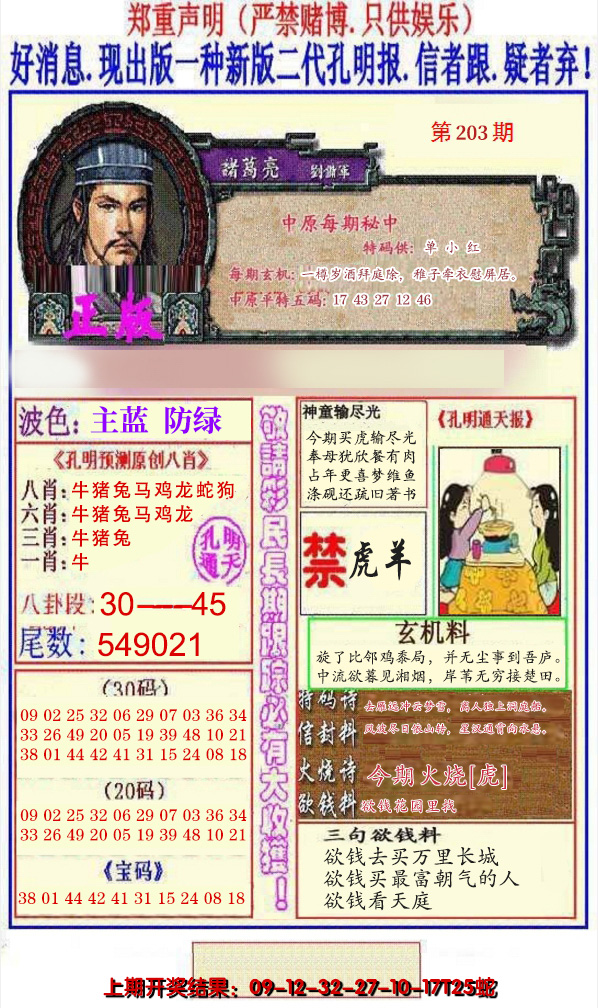 郑重声明（严禁赌博.只供娱乐）
好消息.现出版一种新版二代孔明报.信者跟.疑者弃！
第203期
諸葛亮 劉備軍
中原每期秘中
特码供：单小红
每期玄机：一樽岁酒拜庭除，稚子牵衣慰屏居。
中原平特五码：17 43 27 12 46
正版
波色：主蓝 防绿
《孔明预测原创八肖》
八肖：牛猪兔马鸡龙蛇狗
六肖：牛猪兔马鸡龙
三肖：牛猪兔
一肖：牛
孔明
通天
八卦段：30——45
尾数：549021
（30码）
09 02 25 32 06 29 07 03 36 34
33 26 49 20 05 19 39 48 10 21
38 01 44 42 41 31 15 24 08 18
（20码）
09 02 25 32 06 29 07 03 36 34
33 26 49 20 05 19 39 48 10 21
《宝码》
38 01 44 42 41 31 15 24 08 18
敬請彩民長期跟踪必有大收獲！
神童输尽光
今期买虎输尽光
奉母犹欣餐有肉
占年更喜梦维鱼
涤砚还疏旧著书
《孔明通天报》
禁 虎羊
玄机料
旋了比邻鸡黍局，并无尘事到吾庐。
中流欲暮见湘烟，岸苇无穷接楚田。
特码诗 去雁远冲云梦雪，离人独上洞庭船。
信封料 风波尽日依山转，星汉通宵向水悬。
火烧诗 今期火烧[虎]
欲钱料 欲钱花园里找
三句欲钱料
欲钱去买万里长城
欲钱买最富朝气的人
欲钱看天庭
上期开奖结果：09-12-32-27-10-17T25蛇